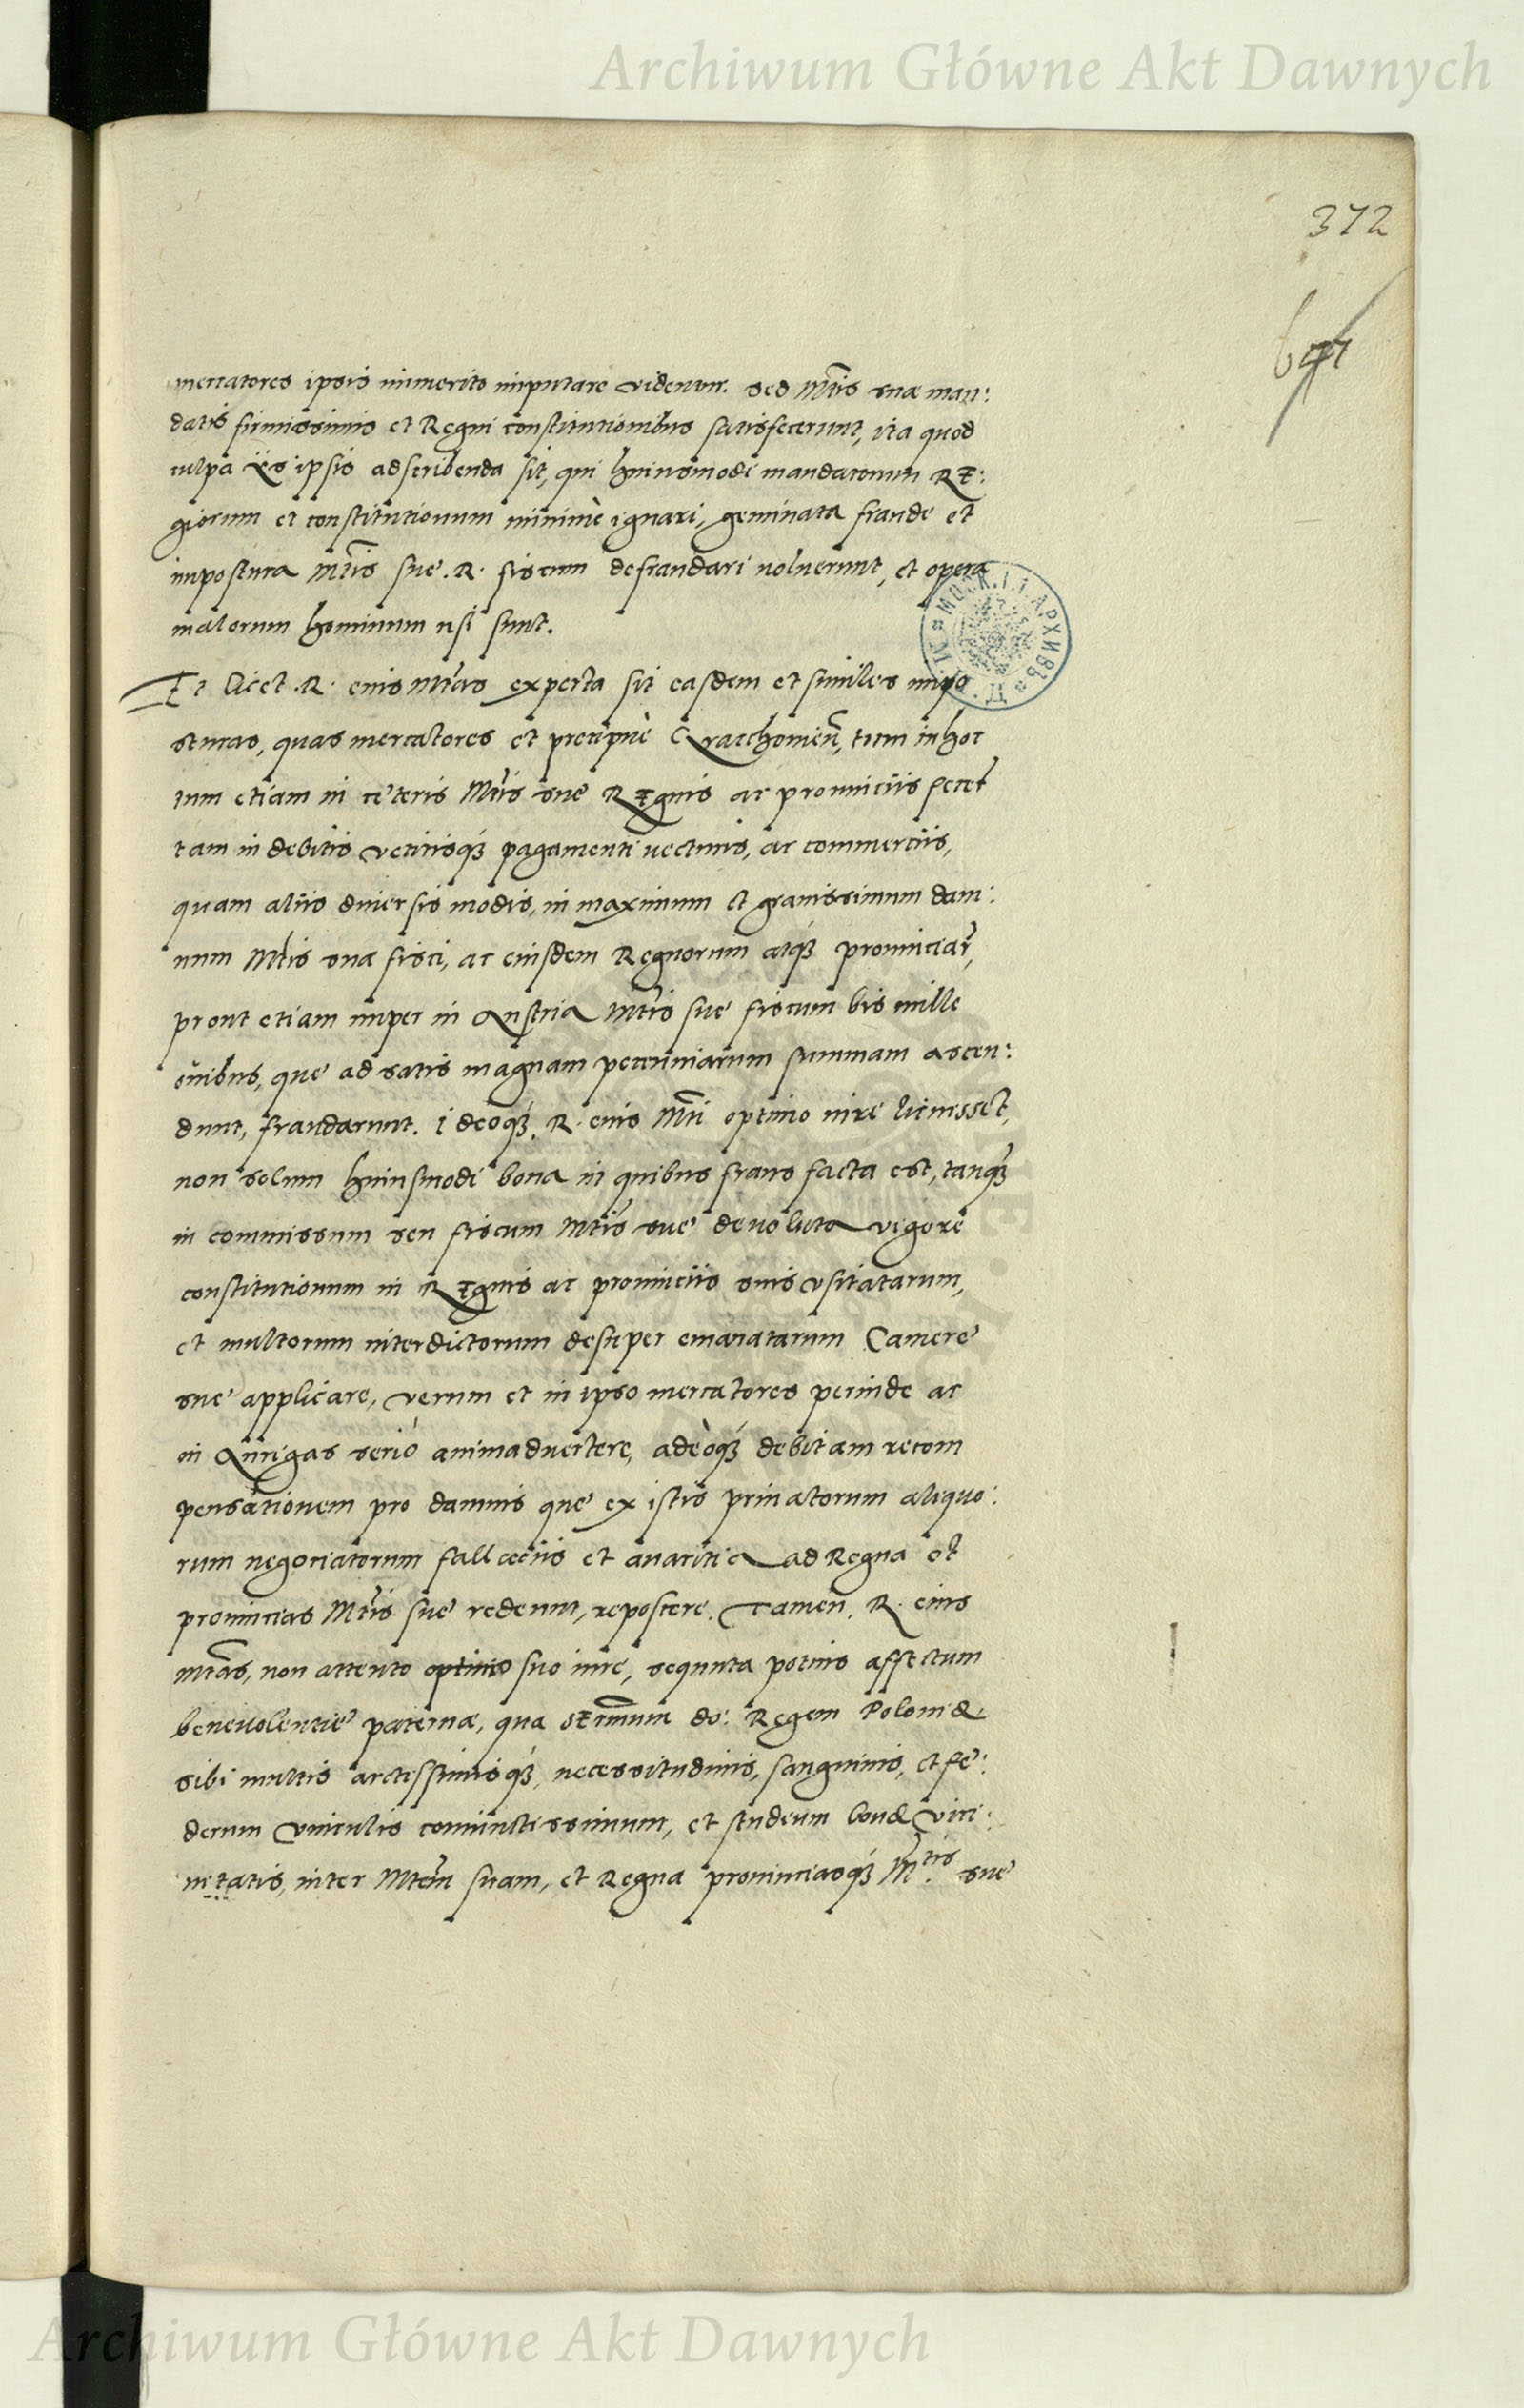 Archiwum Główne Akt Dawnych
372
mercatores ipsis immerito imputare videntur. sed Mtis suæ man:
datis firmissimis et Regni constitutionibus satisfecerunt, ita quod
culpa iis ipsis adscribenda sit, qui huiusmodi mandatorum Re:
giorum et constitutionum minimè ignari, geminata fraude et
impostura Mtis sue. R. fiscum defraudari uoluerunt, et opera
malorum hominum usi sunt.
Et licet .R. eius Mtas experta sit easdem et similes impo
sturas, quas mercatores et precipuè Cracchouień, tum in hoc
tum etiam in ceteris Mtis sue Regnis ac prouinciis
tam in debitis vetitisq; pagamenti uecturis, ac commerciis,
quam aliis diuersis modis, in maximum et grauissimum dam:
num Mtis suæ fisci, ac eiusdem Regnorum atq; prouinciar,
prout etiam nuper in Austria Mtis sue fiscum bis mille
ouibus, que ad satis magnam pecuniarum summam ascen:
dunt, fraudarunt. ideoq;. R. eius Mti optimo iure licuisset,
non solum huiusmodi bona in quibus fraus facta est, tanq;
in commissum seu fiscum Mtis sue deuoluta vigore
constitutionum in Regnis ac prouinciis suis vsitatarum,
et multorum interdictorum desuper emanatarum Camere
sue applicare, verum et in ipso mercatores perinde ac
in Aurigas seriò animaduertere, adeòq; debitam recom
pensationem pro damnis que ex istis priuatorum aliquo:
rum negociatorum fallaciis et auaritia ad Regna et
prouincias Mtis sue redeunt, reposcere. Tamen. R. eius
Mtas, non attento optimo suo iure, sequuta potius affectum
beneuolentie paternæ, qua sermum do: Regem Poloniæ
sibi multis arctissimisq; necessitudinis, sanguinis, et fe:
derum vinculis coniunctissimum, et studium bonæ vici:
nitatis, inter Mtem suam, et Regna prouinciasq; Mtis sue
МОСК. АРХИВЪ М. И. Д.
Archiwum Główne Akt Dawnych